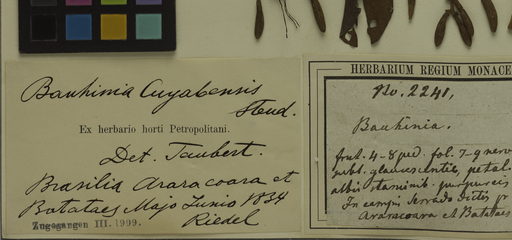 Bauhinia Cuyabensis
Steud.
Ex herbario horti Petropolitani.
Det. Taubert.
Brasilia Araracoara et
Batataes Majo Junio 1834
Riedel
Zugegangen III. 1909.
HERBARIUM REGIUM MONACE
No. 2241,
Bauhinia.
frut. 4-8 ped. fol. 7-9 nerv
subt. glaucescentis, petal.
albis staminib. purpureis
In campis Serrado dictis pr
Araracoara et Batataes